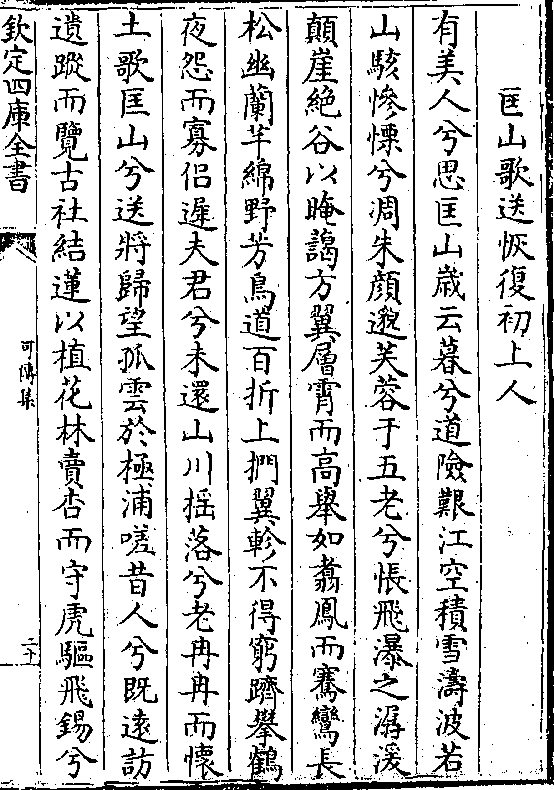 匡山歌送恢復初上人
有美人兮思匡山歳云暮兮道險艱江空積雪濤波若
山駭慘慄兮凋朱顔邈芙蓉于五老兮悵飛瀑之潺湲
顛崖絶谷以晻藹方翼層霄而高舉如翥鳳而騫鸞長
松幽蘭芊綿野芳鳥道百折上捫翼軫不得窮躋攀鶴
夜怨而寡侣遲夫君兮未還山川揺落兮老冉冉而懷
土歌匡山兮送將歸望孤雲於極浦嗟昔人兮既逺訪
遺蹤而覽古社結蓮以植花林賣杏而守虎驅飛錫兮
欽定四庫全書
可傳集
二十